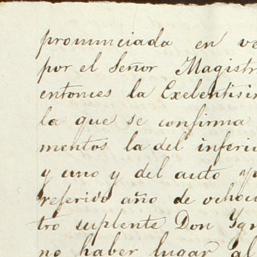 pronunciada en ve
por el Señor Magistr
entonces la Exelentisi
la que se confirma
mentos la del inferio
y uno y del auto
referido año de ochoci
tro suplente Don Ygn
no haber lugar al